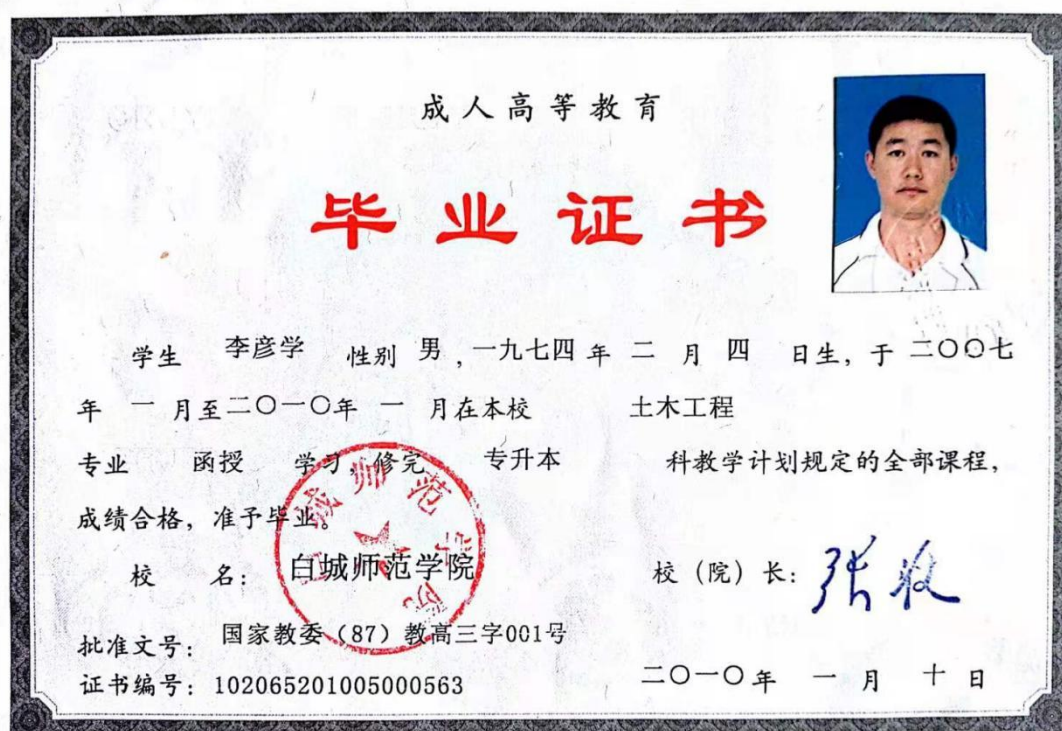 成人高等教育
毕业证书
学生 李彦学 性别 男，一九七四 年 二 月 四 日生，于 二〇〇七
年 一 月至二〇一〇年 一 月在本校 土木工程
专业 函授 学习，修完 专升本 科教学计划规定的全部课程，
成绩合格，准予毕业。
白城师范学院
校 名： 白城师范学院 校（院）长：
批准文号： 国家教委（87）教高三字001号
证书编号：102065201005000563 二〇一〇年 一 月 十 日